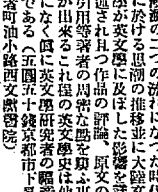 想潮の二つの流れになつた時
に於ける思潮の推移並に大躍充
學が英文學に及ぼした影響を説
述され且つ作品の評論、原文の
引用等著者の周密な態を窺ふ事
が出來るこれ程の英文學史は他
になく眞に英文學研究者の福音
である（五圓五十錢京都市下長
者町油小路西文獻書院）